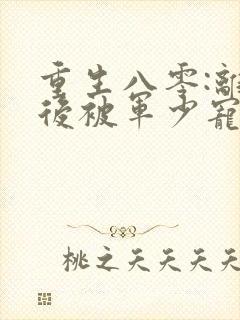 重生八零:離
後被軍少寵
桃之夭夭夭夭